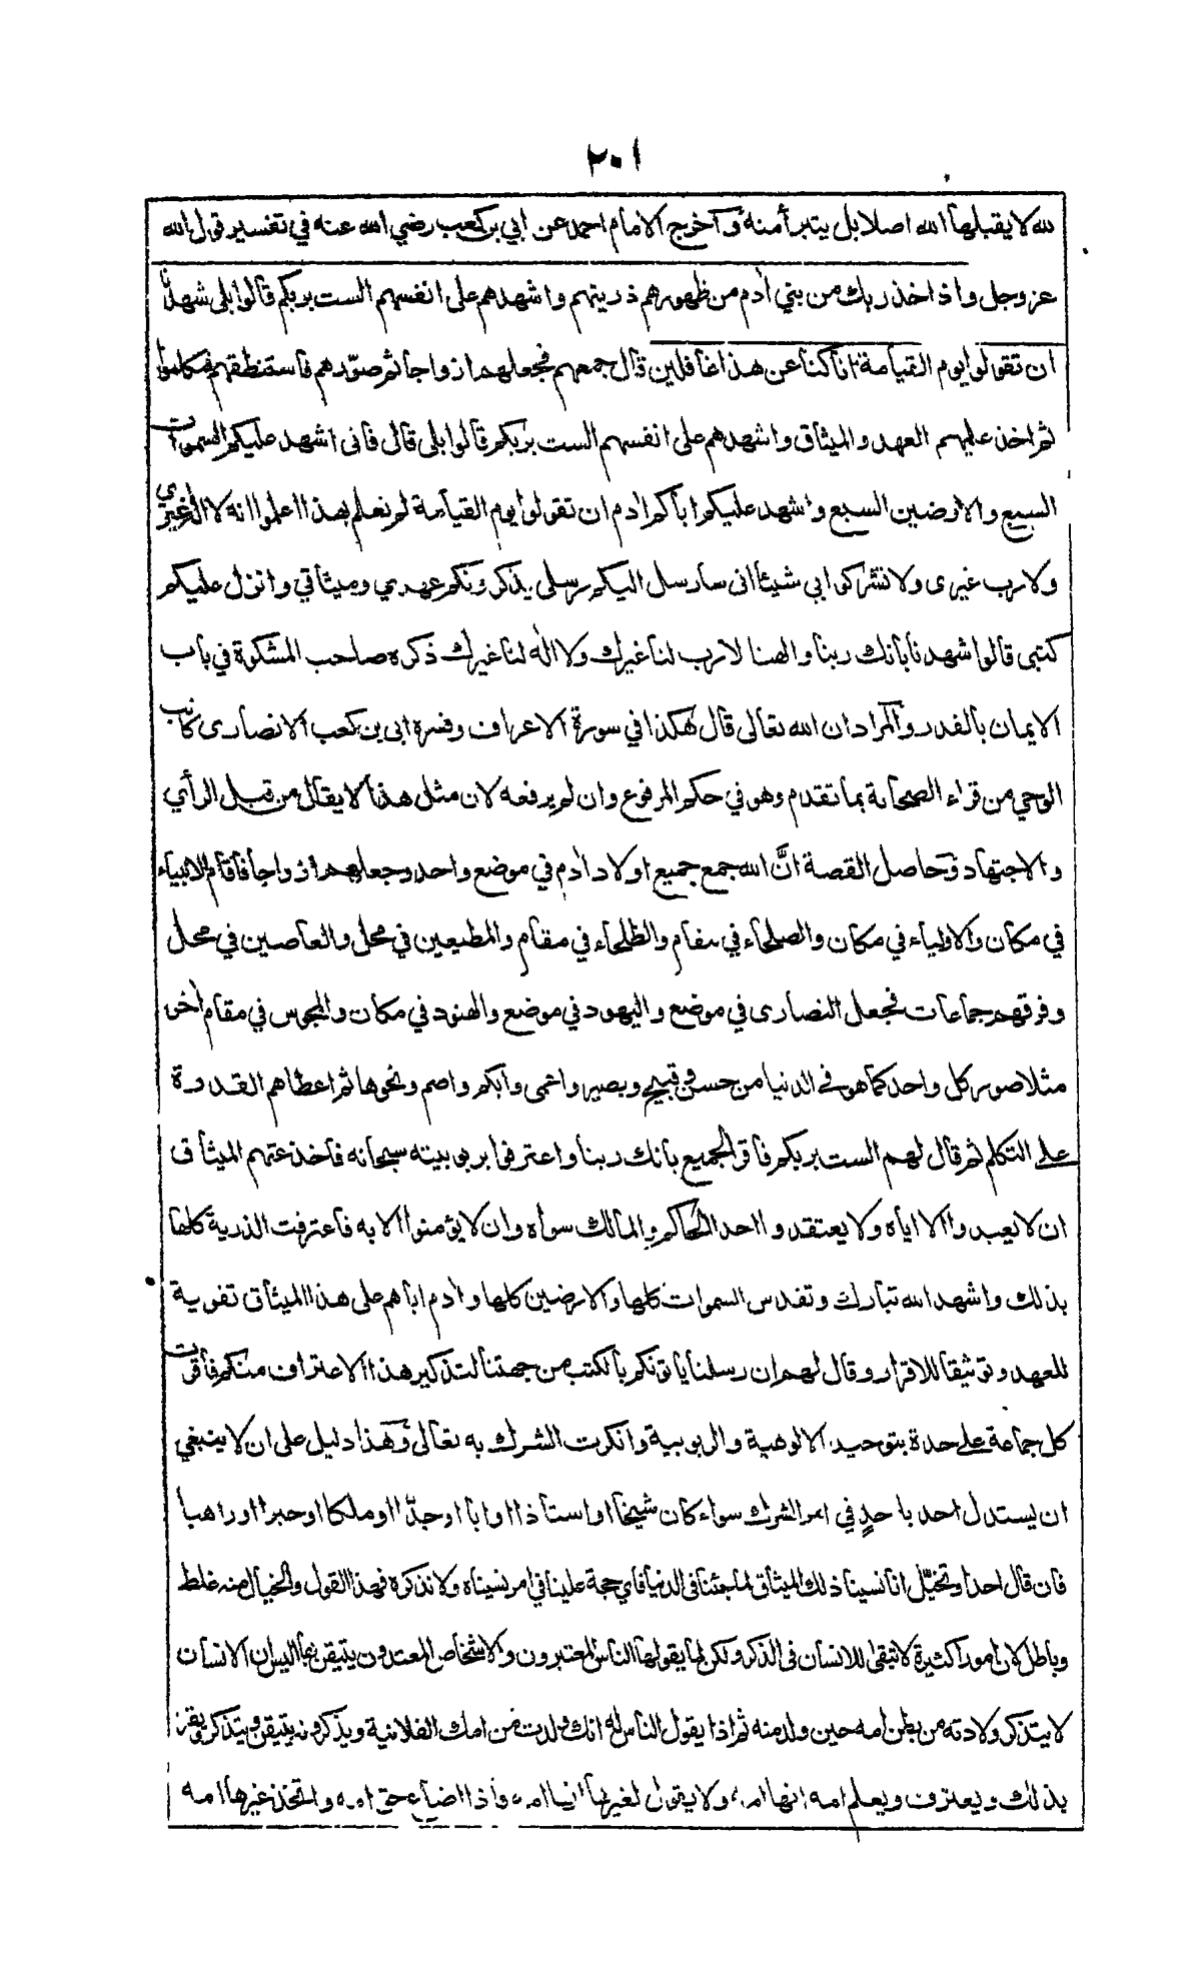 ٢٠١
لله لا يقبلها الله اصلا بل يتبرأ منه وآخرج الامام احمد عن ابي بن كعب رضي الله عنه في تفسير قول الله
عز وجل واذ اخذ ربك من بني أدم من ظهورهم ذريتهم واشهدهم على انفسهم الست بربكم قالوا بلى شهدنا
ان تقولوا يوم القيامة انا كنا عن هذا غافلين قال جمعهم فجعلهم ازواجا ثم صوّرهم فاستنطقهم فتكلموا
ثم اخذ عليهم العهد والميثاق واشهدهم على انفسهم الست بربكم قالوا بلى قال فانى اشهد عليكم السموات
السبع والارضين السبع واشهد عليكم اباكم ادم ان تقولوا يوم القيامة لم نعلم بهذا اعلموا انه لا اله غيري
ولا رب غيرى ولا تشركوا بي شيئا انى سارسل اليكم رسلى يذكرونكم عهدي وميثاقي وانزل عليكم
كتبى قالوا شهدنا بانك ربنا والهنا لا رب لنا غيرك ولا اله لنا غيرك ذكره صاحب المشكوة في باب
الايمان بالقدر والمراد ان الله تعالى قال هكذا في سورة الاعراف وفسره ابى بن كعب الانصارى كاتب
الوحي من قراء الصحابة بما تقدم وهو في حكم المرفوع وان لم يرفعه لان مثل هذا لا يقال من قبل الرأي
والاجتهاد وحاصل القصة انَّ الله جمع جميع اولاد أدم في موضع واحد وجعلهم ازواجا فاقام الانبياء
في مكان والاولياء في مكان والصلحاء في مقام والطلحاء في مقام والمطيعين في محل والعاصين في محل
وفرقهم جماعات فجعل النصارى في موضع واليهود في موضع والهنود في مكان والمجوس في مقام أخر
مثلا صور كل واحد كما هو في الدنيا من حسن وقبيح وبصير واعمى وابكم واصم ونحوها ثم اعطاهم القدرة
على التكلم ثم قال لهم الست بربكم فاقر الجميع بانك ربنا واعترفوا بربوبيته سبحانه فاخذ عنهم الميثاق
ان لا يعبدوا الا اياه ولا يعتقدوا احدا الحاكم والمالك سواه وان لا يؤمنوا الا به فاعترفت الذرية كلها
بذلك واشهد الله تبارك وتقدس السموات كلها والارضين كلها وأدم اباهم على هذا الميثاق تقوية
للعهد وتوثيقا للاقرار وقال لهم ان رسلنا ياتونكم بالكتب من جهتنا لتذكير هذا الاعتراف منكم فاقرت
كل جماعة على حدة بتوحيد الالوهية والربوبية وانكرت الشرك به تعالى وهذا دليل على ان لا ينبغي
ان يستدل احد باحدٍ في امر الشرك سواء كان شيخا او استاذا او ابا او جدّا او ملكا او حبرا او راهبا
فان قال احد او تخيّل انا نسينا ذلك الميثاق لما جئنا فى الدنيا فاي حجة علينا في امر نسيناه ولا نذكره فهذا القول والخيال منه غلط
وباطل لان امورا كثيرة لا تبقى للانسان فى الذكر ولكن لما يقولها الناس المعتبرون والاشخاص المعتدون يتيقن بها اليس ان الانسان
لا يتذكر ولادته من بطن امه حين ولد منه ثم اذا يقول الناس له انك ولدت من امك الفلانية ويذكرونه يتيقن ويتذكر ويقر
بذلك ويعترف ويعلم امه انها امه ولا يقول لغيرها انها امه واذا اضاع حق امه واتخذ غيرها امه